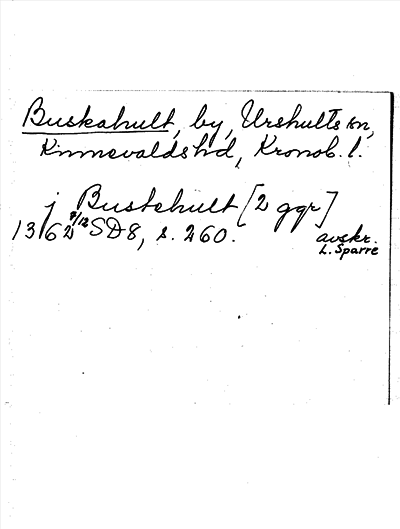 Buskahult, by, Urshults sn,
Kinnevaldshd, Kronob. l.
j Buskhult [2 ggr]
1362 9/12 SD8, s. 260.
avskr.
L. Sparre